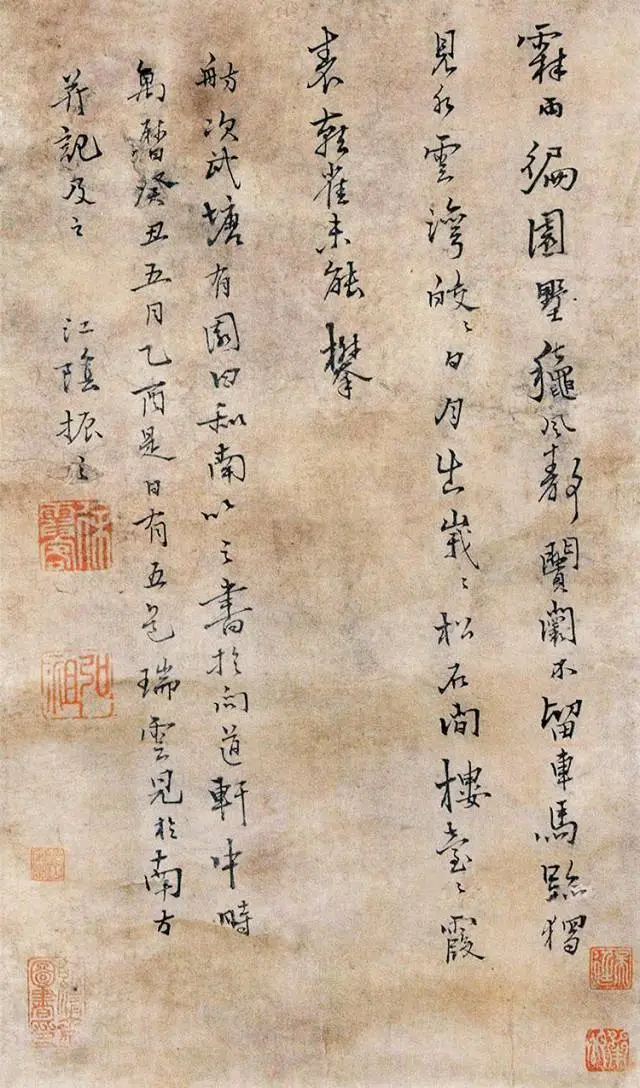 霖雨徧園墅龝風静闠不留車馬跡獨
見水雲灣皎〻日月出峩〻松石間樓臺〻霞
表乾雀未能攀
舫次武塘有園曰和南以之書於問道軒中時
萬曆癸丑五月乙酉是日有五色瑞雲見於南方
并記及之 江陰振之
徐霞客
弘祖